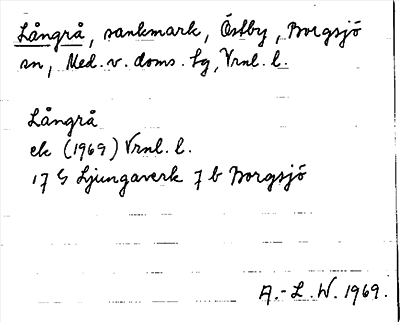 Långrå, sankmark, Östby, Borgsjö
sn, Med. v. doms. tg, Vrnl. l.
Långrå
ek (1969) Vrnl. l.
17 G Ljungaverk 7 b Borgsjö
A.-L. W. 1969.